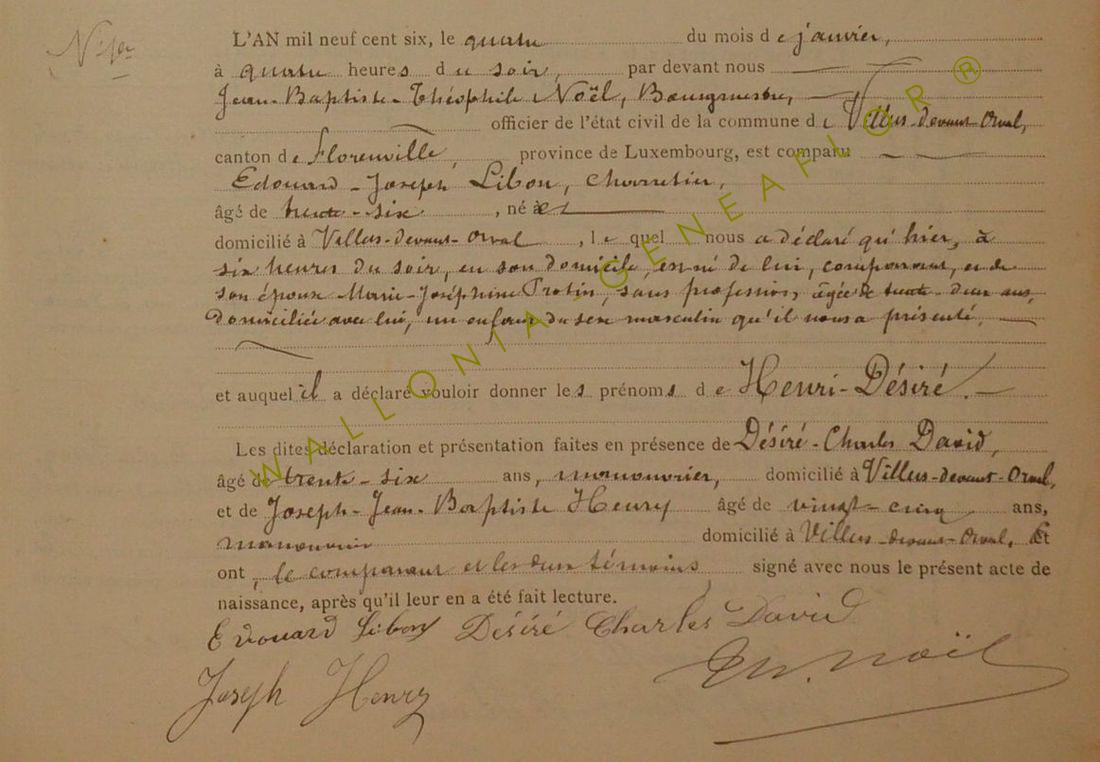 N° 1er
L'AN mil neuf cent six, le quatre du mois de janvier,
à quatre heures du soir, par devant nous
Jean-Baptiste-Théophile Noël, Bourgmestre,
officier de l'état civil de la commune de Villers-devant-Orval,
canton de Florenville, province de Luxembourg, est comparu
Edouard-Joseph Libon, charretier,
âgé de trente-six, né à et
domicilié à Villers-devant-Orval, lequel nous a déclaré qu'hier, à
six heures du soir, en son domicile, est né de lui, comparant, et de
son épouse Marie-Joséphine Protin, sans profession, âgée de trente-deux ans,
domiciliée avec lui, un enfant du sexe masculin qu'il nous a présenté,
et auquel il a déclaré vouloir donner les prénoms de Henri-Désiré.
Les dites déclaration et présentation faites en présence de Désiré-Charles David,
âgé de trente-six ans, manouvrier, domicilié à Villers-devant-Orval,
et de Joseph-Jean-Baptiste Henry âgé de vingt-cinq ans,
manouvrier domicilié à Villers-devant-Orval. Et
ont, le comparant et les deux témoins, signé avec nous le présent acte de
naissance, après qu'il leur en a été fait lecture.
Edouard Libon Désiré Charles David
Joseph Henry Th. Noël
WALLONIA-GENEAFLOR®